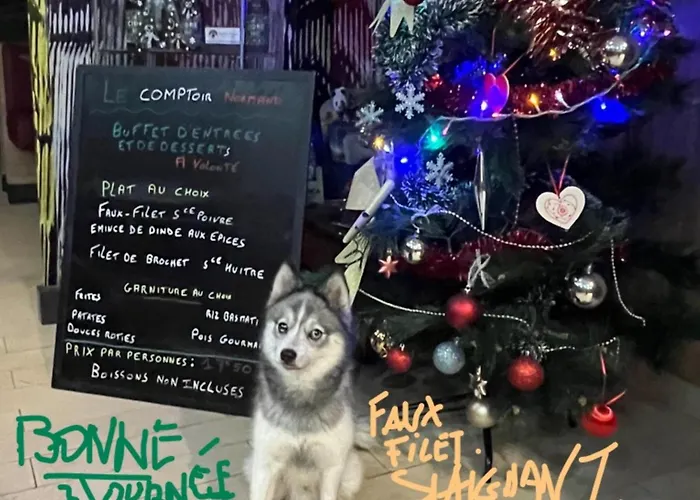 LE COMPTOIR NORMAND
BUFFET D'ENTREES
ET DE DESSERTS
A VOLONTÉ
PLAT AU CHOIX
FAUX-FILET SCE POIVRE
EMINCE DE DINDE AUX EPICES
FILET DE BROCHET SCE HUITRE
GARNITURE AU CHOIX
FRITES RIZ BASMATI
PATATES
DOUCES ROTIES POIS GOURMAN
PRIX PAR PERSONNES:
BOISSONS NON INCLUSES
BONNE
JOURNÉE
FAUX
FILET